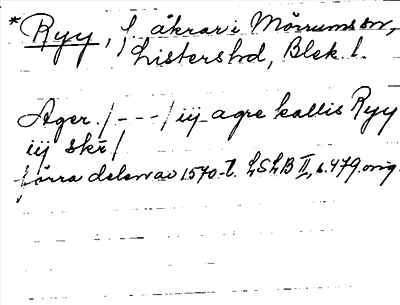 * Ryy, f. åkrar i Mörrums sn,
Listers hd, Blek. l.
Ager. /---/ iij agre kallis Ryy
iij skr /
förra delen av 1570-t. LSLB II, s. 479. orig.